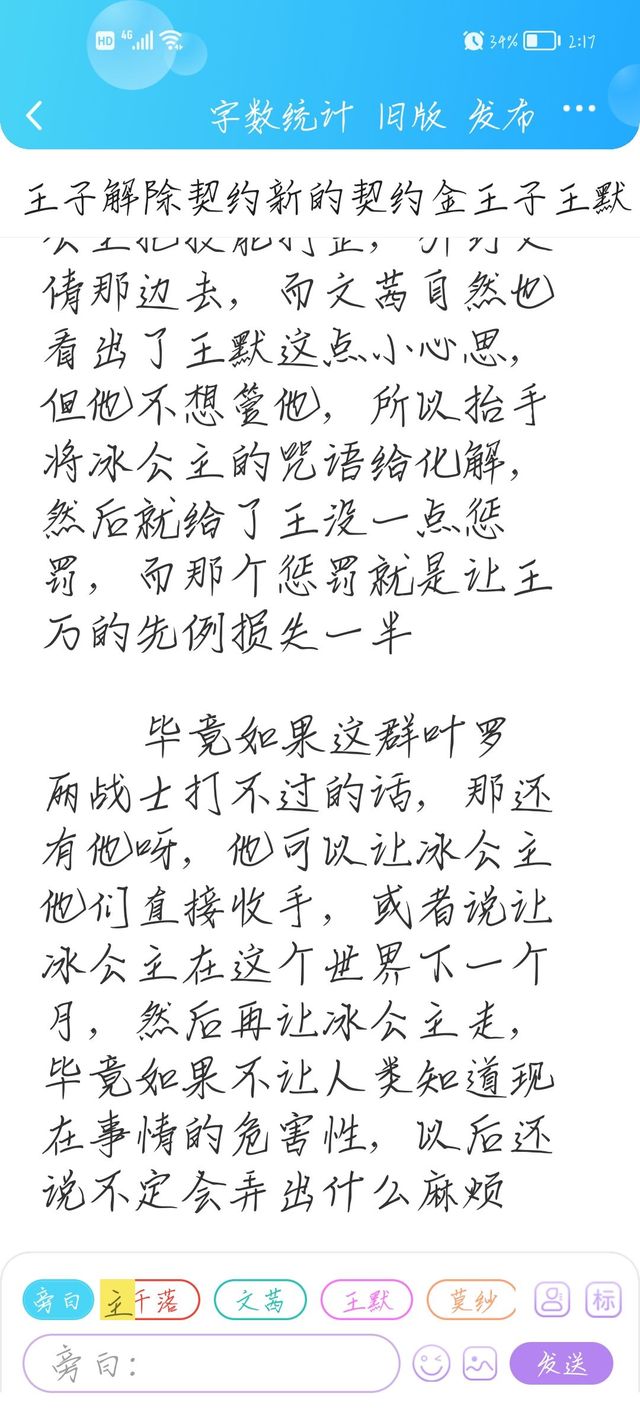 HD 4G 34% 2:17
字数统计 旧版 发布 ...
王子解除契约新的契约金王子王默
公主把技能打歪，引到文
倩那边去，而文茜自然也
看出了王默这点小心思，
但他不想管他，所以抬手
将冰公主的咒语给化解，
然后就给了王没一点惩
罚，而那个惩罚就是让王
万的先例损失一半
毕竟如果这群叶罗
丽战士打不过的话，那还
有他呀，他可以让冰公主
他们直接收手，或者说让
冰公主在这个世界下一个
月，然后再让冰公主走，
毕竟如果不让人类知道现
在事情的危害性，以后还
说不定会弄出什么麻烦
旁白 主千落 文茜 王默 莫纱 标
旁白： 发送